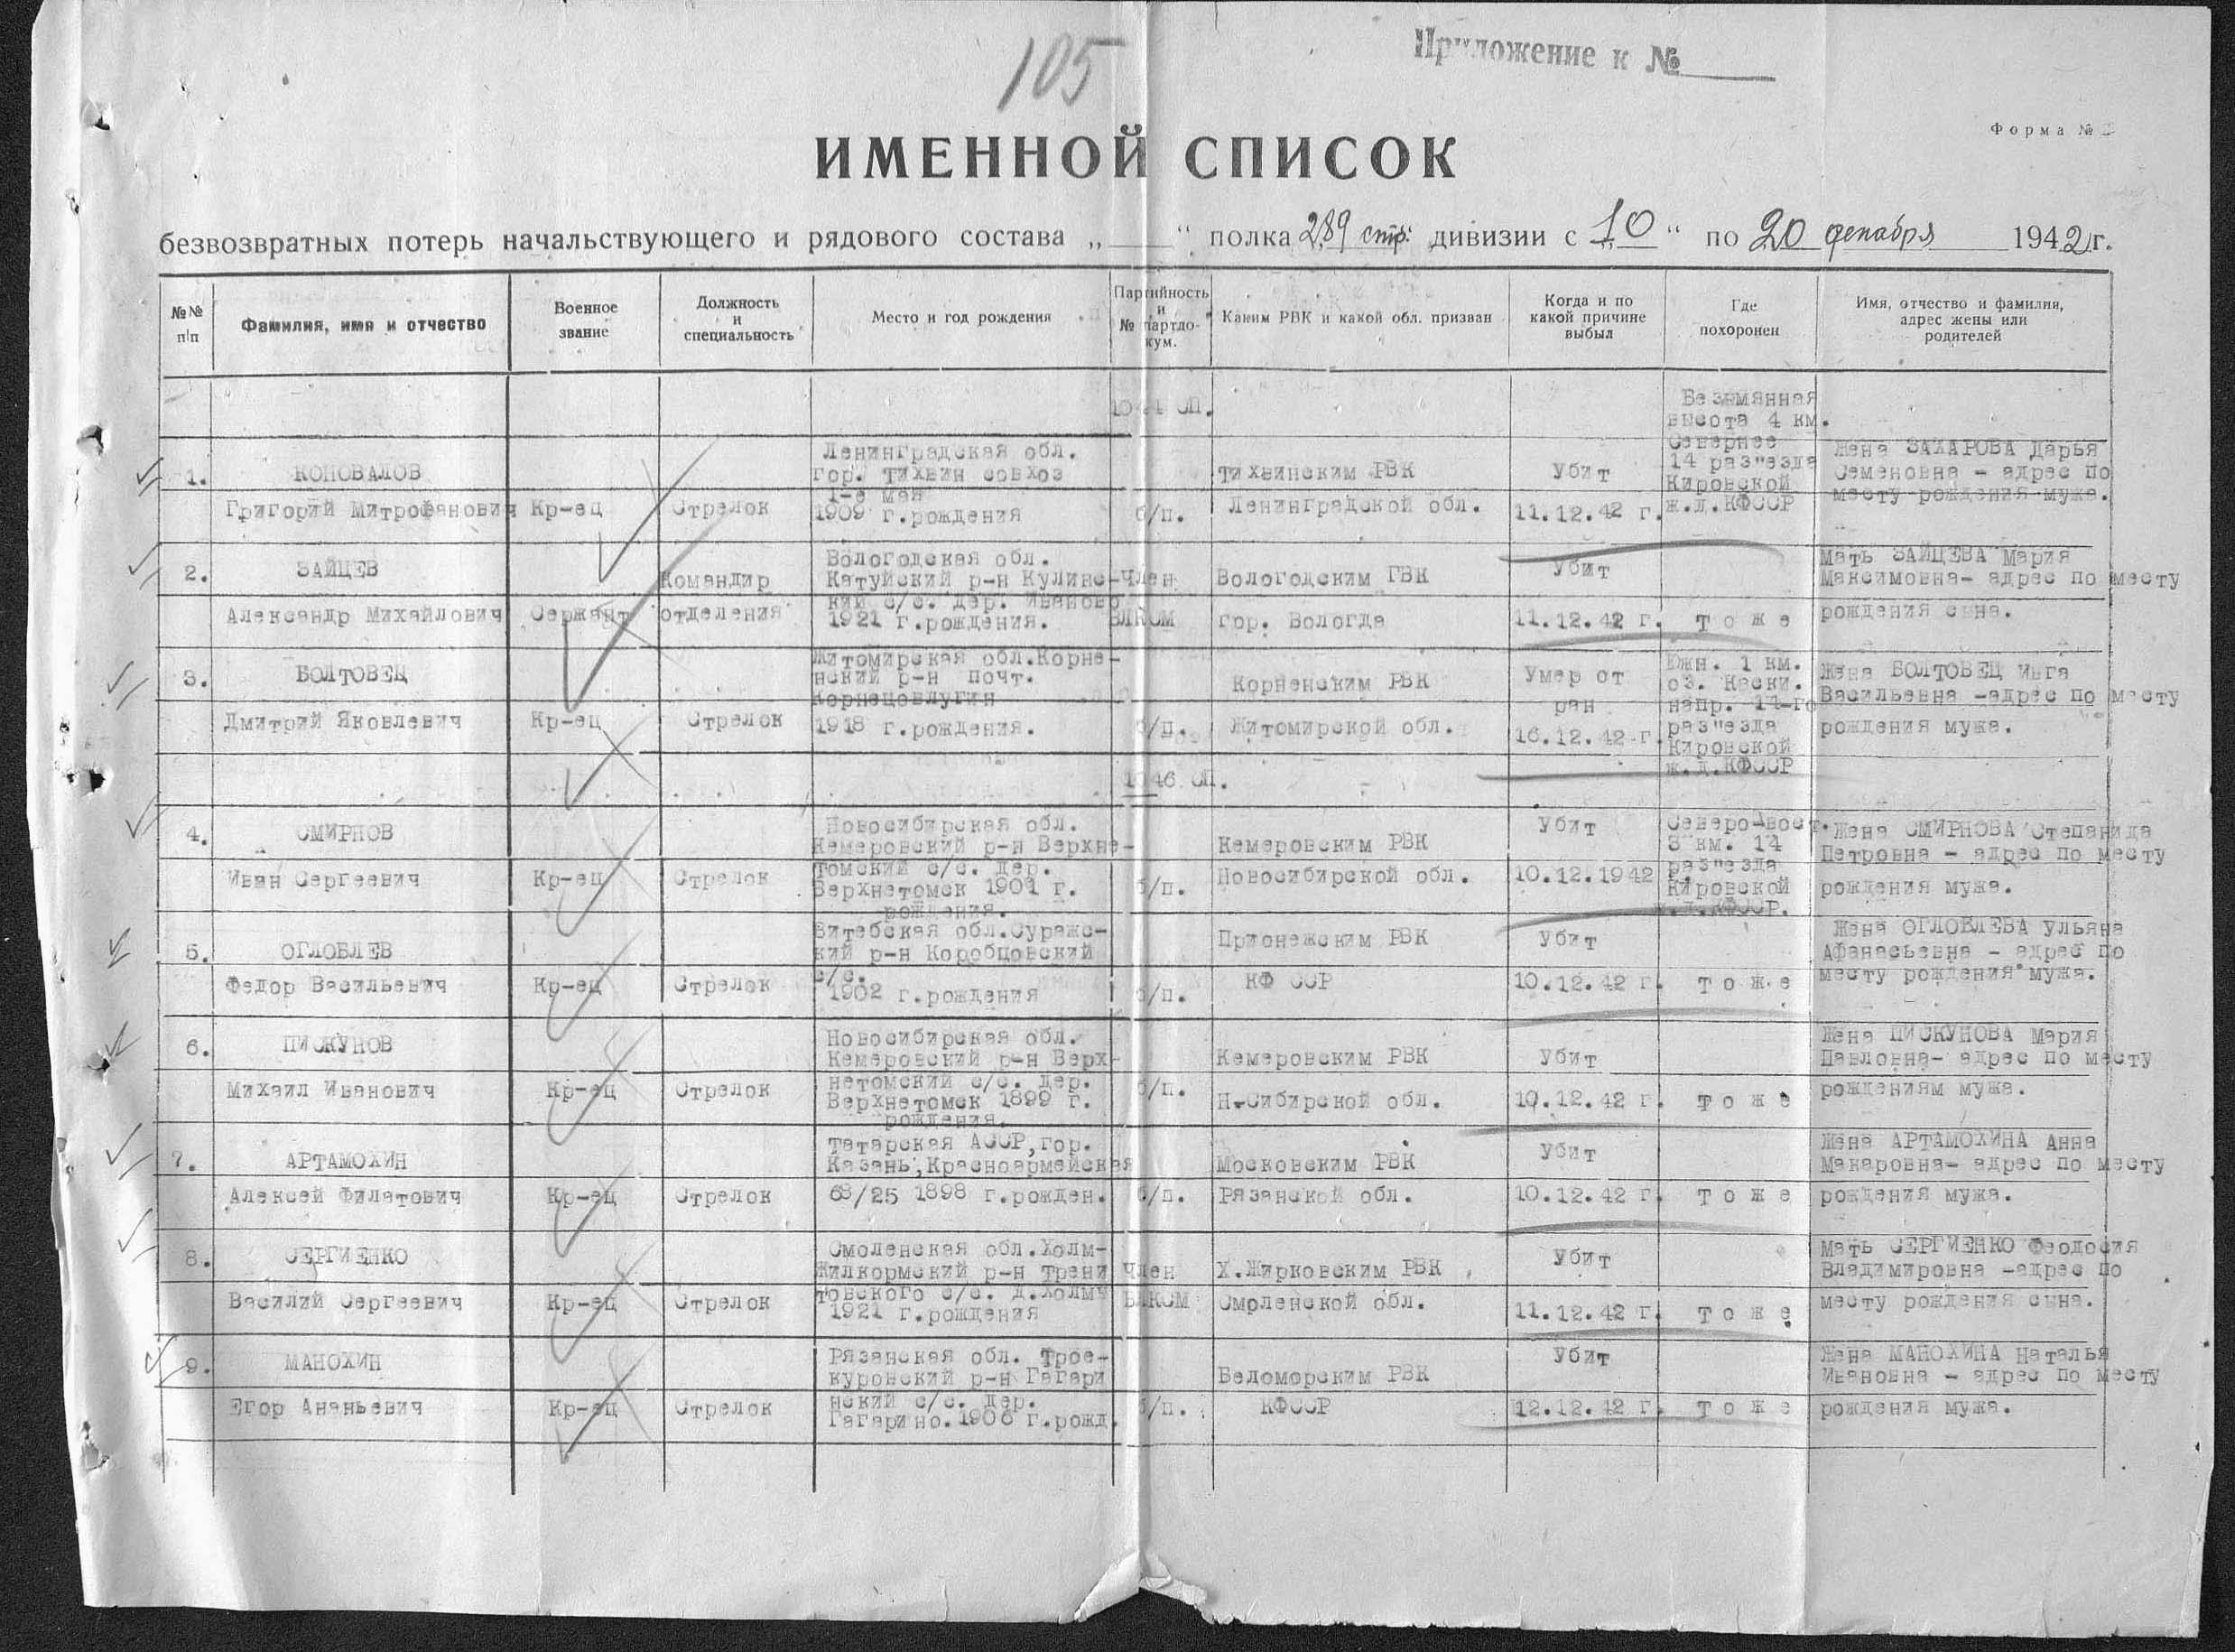 105
Приложение к №
Форма №
ИМЕННОЙ СПИСОК
безвозвратных потерь начальствующего и рядового состава „ “ полка 289 стр. дивизии с „10“ по 20 декабря 1942 г.
№№ п/п
Фамилия, имя и отчество
Военное звание
Должность и специальность
Место и год рождения
Партийность и № партдо- кум.
Каким РВК и какой обл. призван
Когда и по какой причине выбыл
Где похоронен
Имя, отчество и фамилия, адрес жены или родителей
СП.
1.
КОНОВАЛОВ
Григорий Митрофанович
Кр-ец
Стрелок
Ленинградская обл.
гор. Тихвин совхоз
1-е мая
1909 г.рождения
б/п.
Тихвинским РВК
Ленинградской обл.
Убит
11.12.42 г.
Безымянная
высота 4 км.
Севернее
14 раз"езда
Кировской
ж.д.КФССР
Жена ЗАХАРОВА Дарья
Семеновна - адрес по
месту рождения мужа.
2.
ЗАЙЦЕВ
Александр Михайлович
Сержант
Командир
отделения
Вологодская обл.
Катуйский р-н Кулинс-
кий с/с. дер. Иваново
1921 г.рождения.
Член
ВЛКСМ
Вологодским ГВК
гор. Вологда
Убит
11.12.42 г.
т о ж е
Мать ЗАЙЦЕВА Мария
Максимовна- адрес по месту
рождения сына.
3.
БОЛТОВЕЦ
Дмитрий Яковлевич
Кр-ец
Стрелок
Житомирская обл.Корне-
нский р-н почт.
Корнецовлугин
1918 г.рождения.
б/п.
Корненским РВК
Житомирской обл.
Умер от
ран
16.12.42 г.
Южн. 1 км.
оз. Каски.
напр. 14-го
раз"езда
Кировской
ж.д.КФССР
Жена БОЛТОВЕЦ Инга
Васильевна -адрес по месту
рождения мужа.
1046 СП.
4.
СМИРНОВ
Иван Сергеевич
Кр-ец
Стрелок
Новосибирская обл.
Кемеровский р-н Верхне-
томский с/с. дер.
Верхнетомск 1901 г.
рождения.
б/п.
Кемеровским РВК
Новосибирской обл.
Убит
10.12.1942
Северо-вост.
3 км. 14
раз"езда
Кировской
ж.д.КФССР.
Жена СМИРНОВА Степанида
Петровна - адрес по месту
рождения мужа.
5.
ОГЛОБЛЕВ
Федор Васильевич
Кр-ец
Стрелок
Витебская обл.Суражс-
кий р-н Коробцовский
с/с.
1902 г.рождения
б/п.
Прионежским РВК
КФ ССР
Убит
10.12.42 г.
т о ж е
Жена ОГЛОБЛЕВА Ульяна
Афанасьевна - адрес по
месту рождения мужа.
6.
ПИСКУНОВ
Михаил Иванович
Кр-ец
Стрелок
Новосибирская обл.
Кемеровский р-н Верх-
нетомский с/с. дер.
Верхнетомск 1899 г.
рождения.
б/п.
Кемеровским РВК
Н-Сибирской обл.
Убит
10.12.42 г.
т о ж е
Жена ПИСКУНОВА Мария
Павловна- адрес по месту
рождениям мужа.
7.
АРТАМОХИН
Алексей Филатович
Кр-ец
Стрелок
Татарская АССР,гор.
Казань,Красноармейская
68/25 1898 г.рожден.
б/п.
Московским РВК
Рязанской обл.
Убит
10.12.42 г.
т о ж е
Жена АРТАМОХИНА Анна
Макаровна- адрес по месту
рождения мужа.
8.
СЕРГИЕНКО
Василий Сергеевич
Кр-ец
Стрелок
Смоленская обл.Холм-
Жилкормский р-н Трени
товского с/с. д.Холмы
1921 г.рождения
Член
ВЛКСМ
Х.Жирковским РВК
Смоленской обл.
Убит
11.12.42 г.
т о ж е
Мать СЕРГИЕНКО Феодосия
Владимировна -адрес по
месту рождения сына.
9.
МАНОХИН
Егор Ананьевич
Кр-ец
Стрелок
Рязанская обл. Трое-
куровский р-н Гагари
нский с/с. дер.
Гагарино.1906 г.рожд.
б/п.
Беломорским РВК
КФССР
Убит
12.12.42 г.
т о ж е
Жена МАНОХИНА Наталья
Ивановна - адрес по месту
рождения мужа.